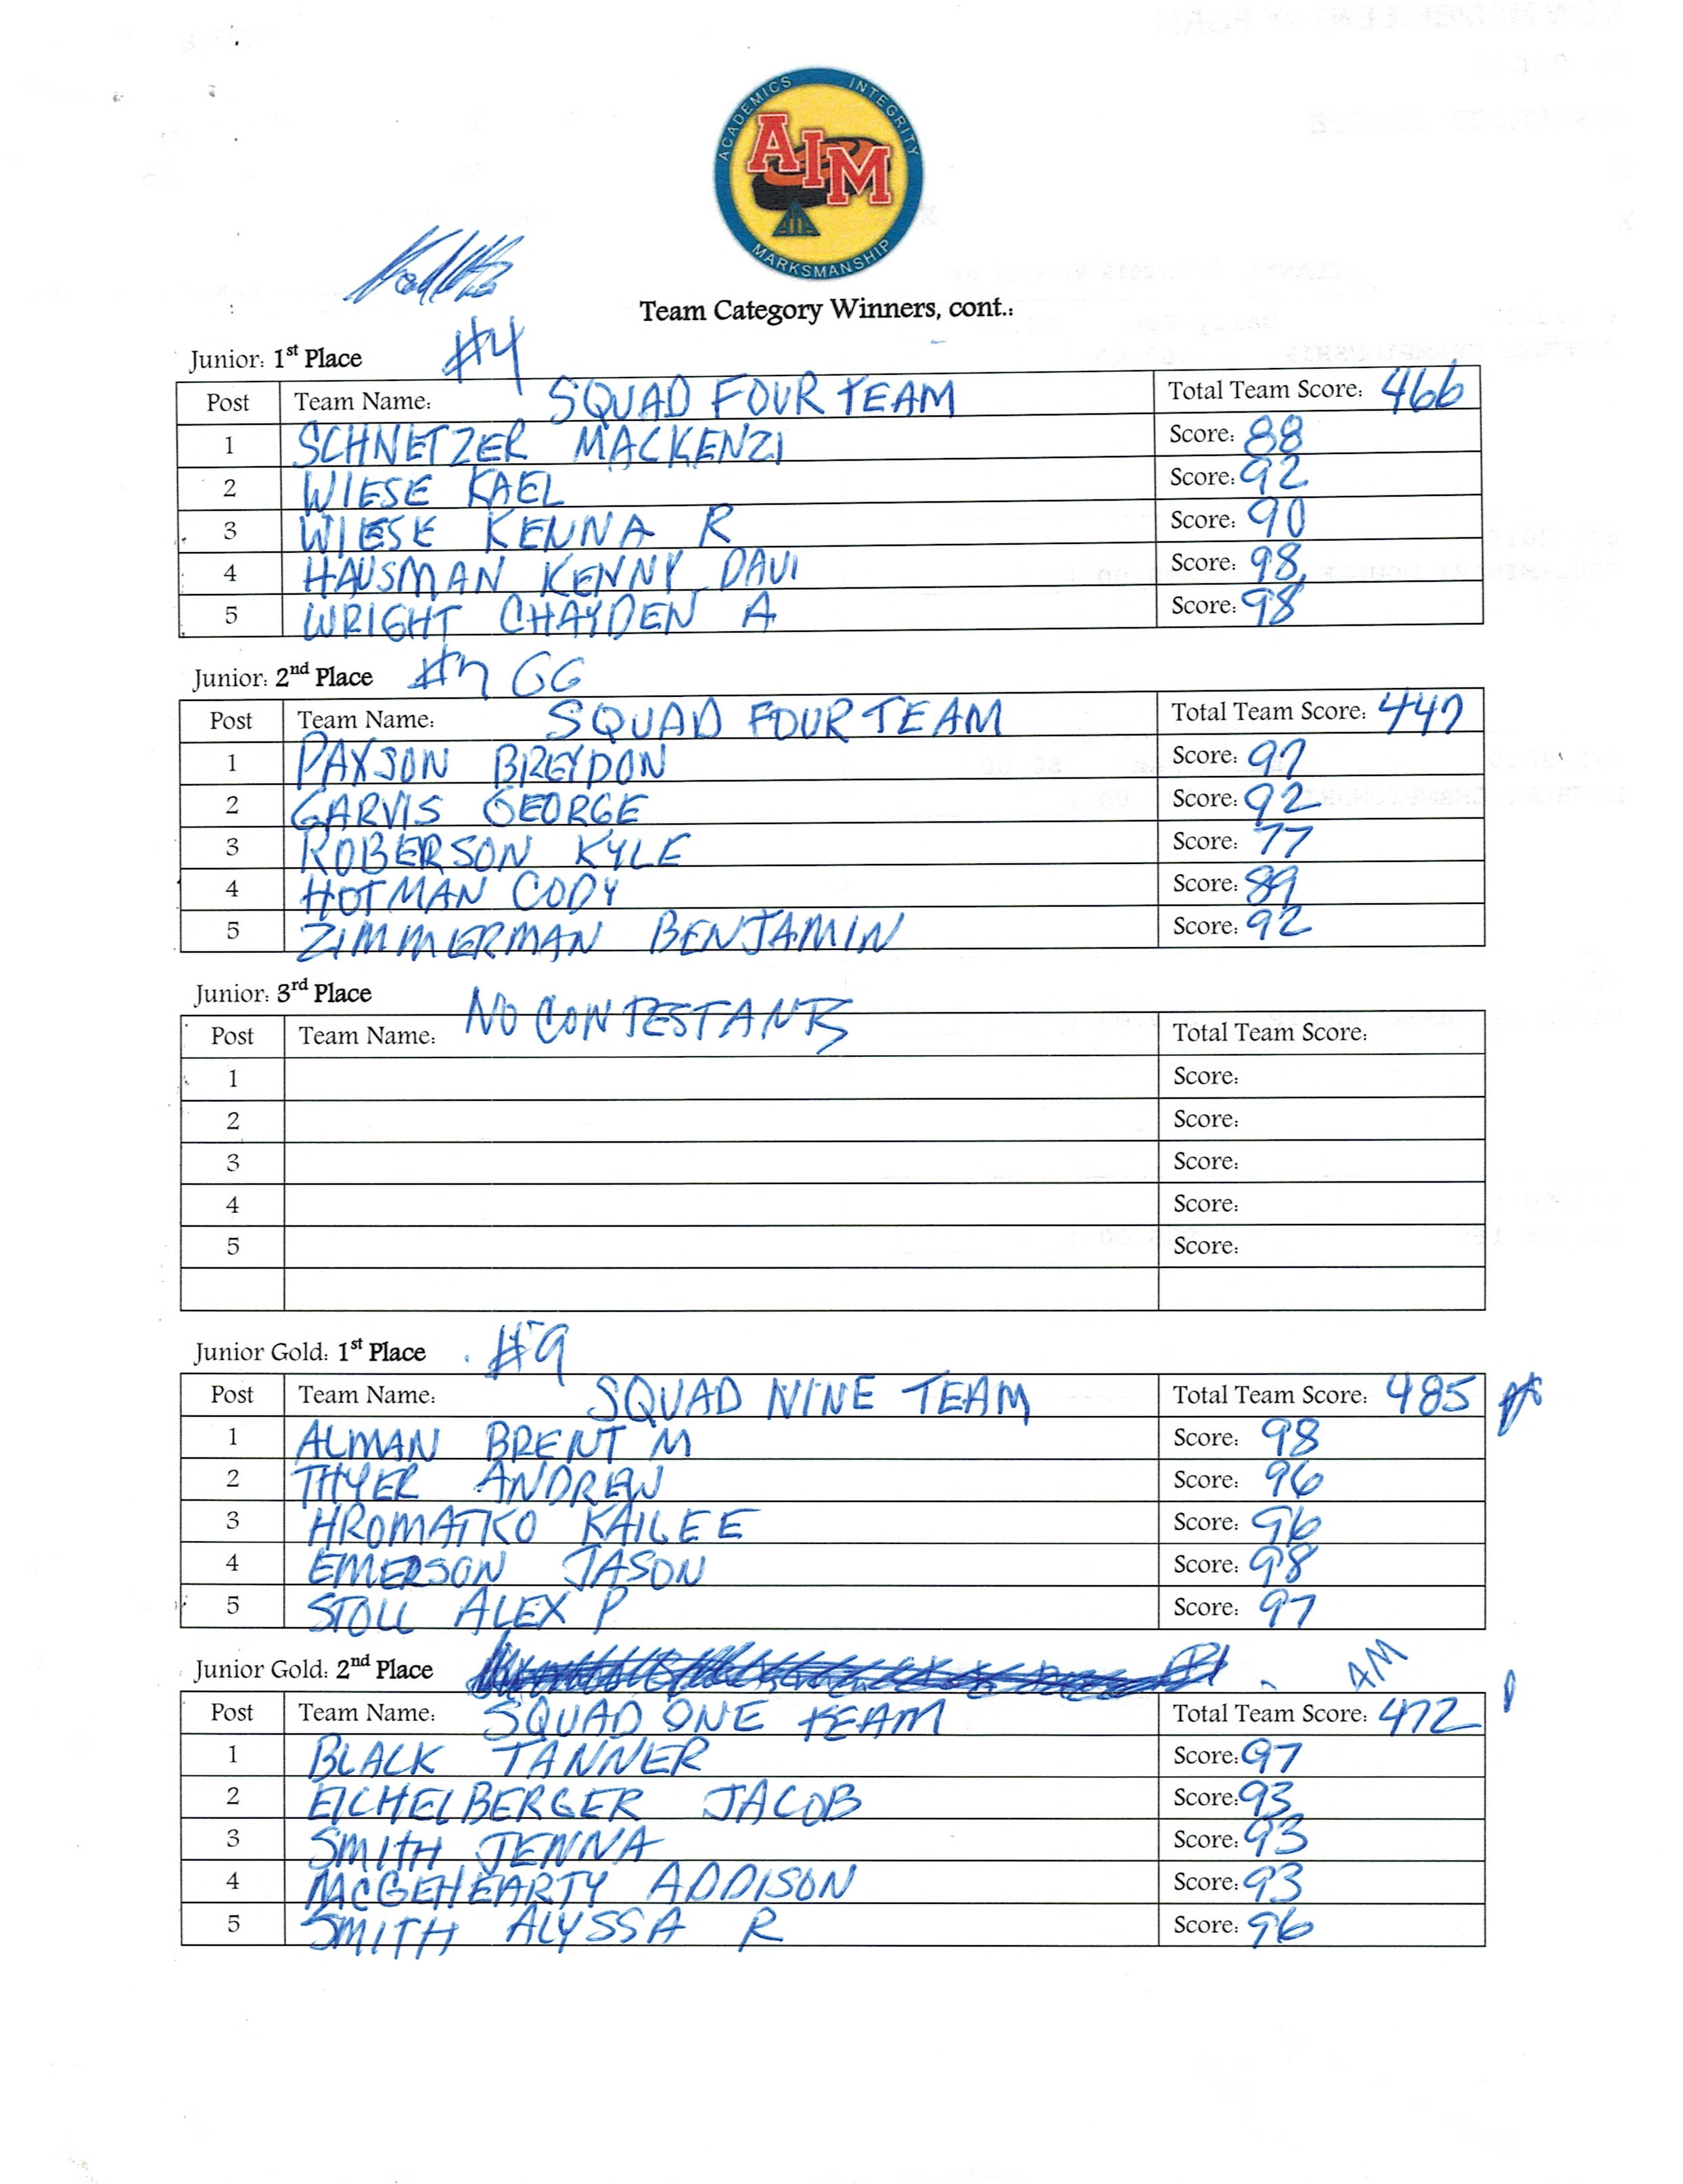 ACADEMICS INTEGRITY
AIM
ATA
MARKSMANSHIP
Team Category Winners, cont.:
Junior: 1st Place #4
Post Team Name: SQUAD FOUR TEAM Total Team Score: 466
1 SCHNETZER MACKENZI Score: 88
2 WIESE KAEL Score: 92
3 WIESE KENNA R Score: 90
4 HAUSMAN KENNY DAVI Score: 98
5 WRIGHT CHAYDEN A Score: 98
Junior: 2nd Place #7 GG
Post Team Name: SQUAD FOUR TEAM Total Team Score: 447
1 PAXSON BREYDON Score: 97
2 GARVIS GEORGE Score: 92
3 ROBERSON KYLE Score: 77
4 HOTMAN CODY Score: 89
5 ZIMMERMAN BENJAMIN Score: 92
Junior: 3rd Place
Post Team Name: NO CONTESTANTS Total Team Score:
1 Score:
2 Score:
3 Score:
4 Score:
5 Score:
Junior Gold: 1st Place #9
Post Team Name: SQUAD NINE TEAM Total Team Score: 485
1 ALMAN BRENT M Score: 98
2 THYER ANDREW Score: 96
3 HROMATKO KAILEE Score: 96
4 EMERSON JASON Score: 98
5 STOLL ALEX P Score: 97
Junior Gold: 2nd Place #1 AM
Post Team Name: SQUAD ONE TEAM Total Team Score: 472
1 BLACK TANNER Score: 97
2 EICHELBERGER JACOB Score: 93
3 SMITH JENNA Score: 93
4 MCGEHEARTY ADDISON Score: 93
5 SMITH ALYSSA R Score: 96